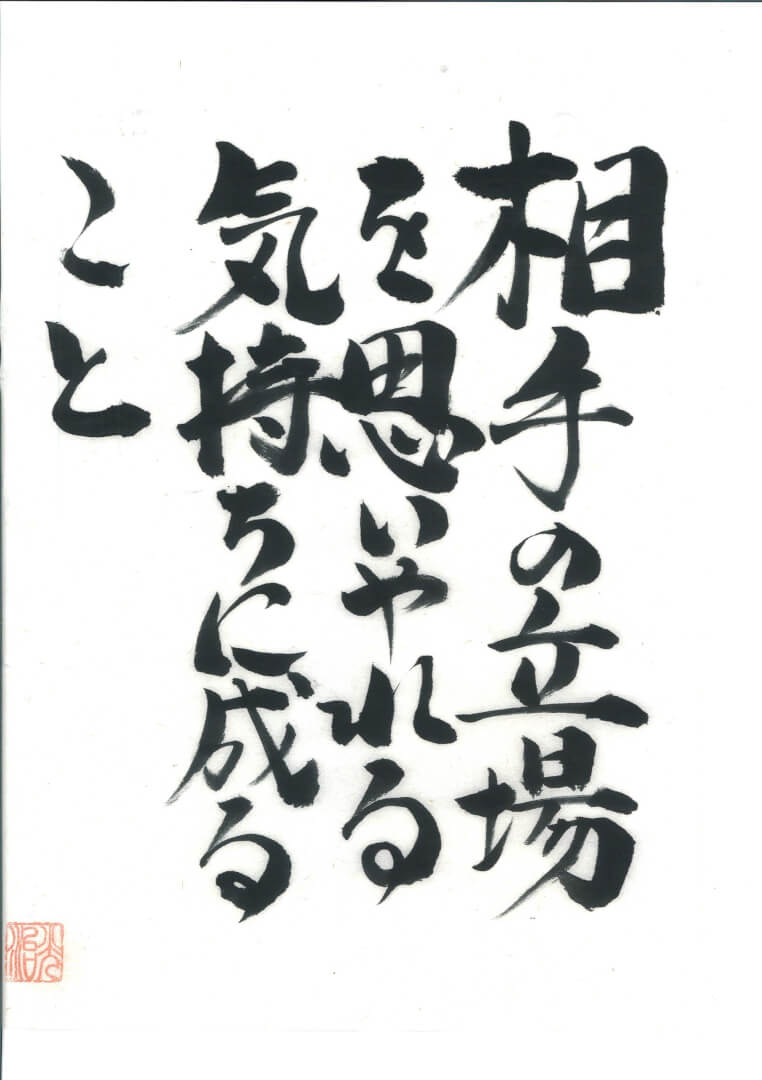 相手の立場
を思いやれる
気持ちに成る
こと